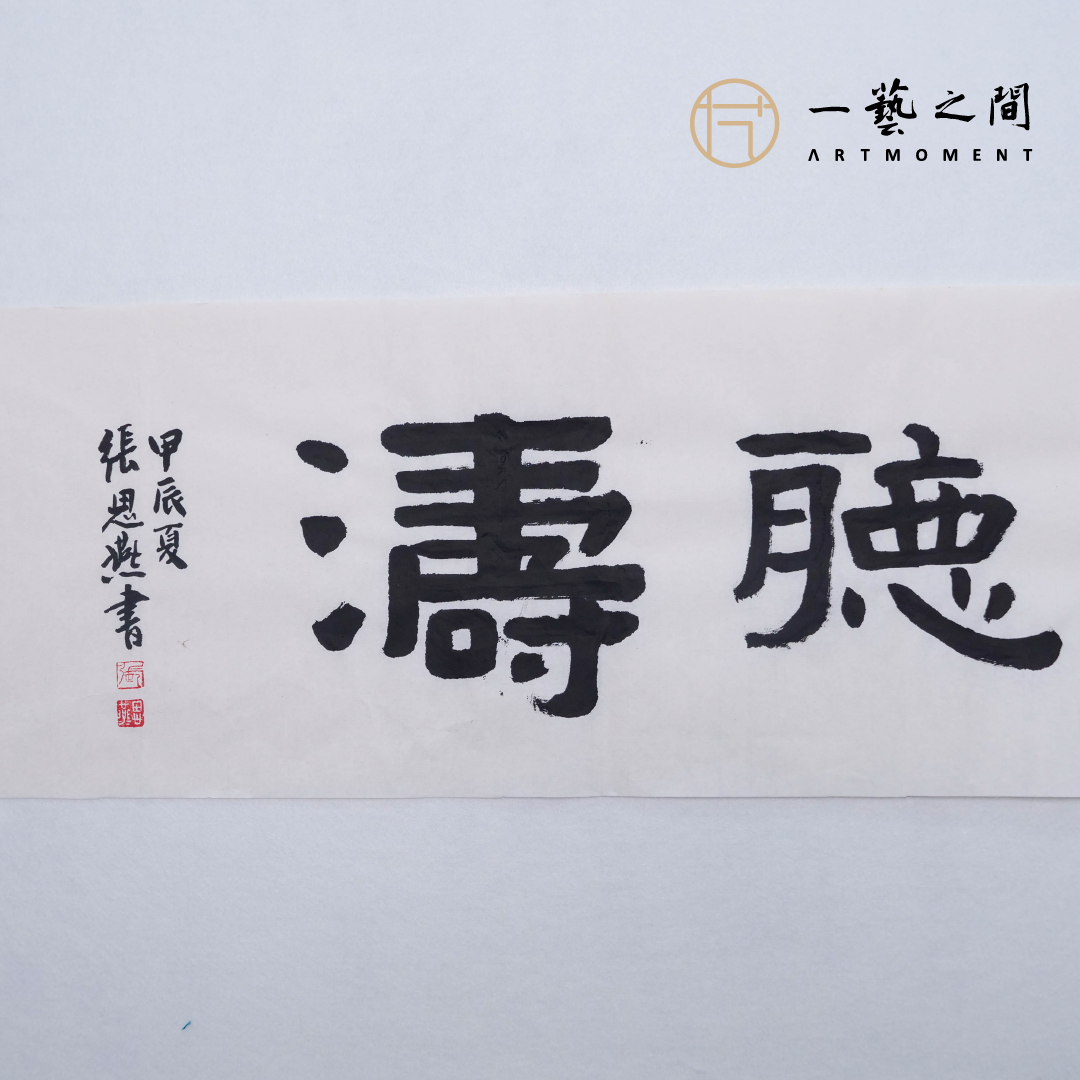 一藝之間
ARTMOMENT
聽濤
甲辰夏
張思燕書
張
思燕